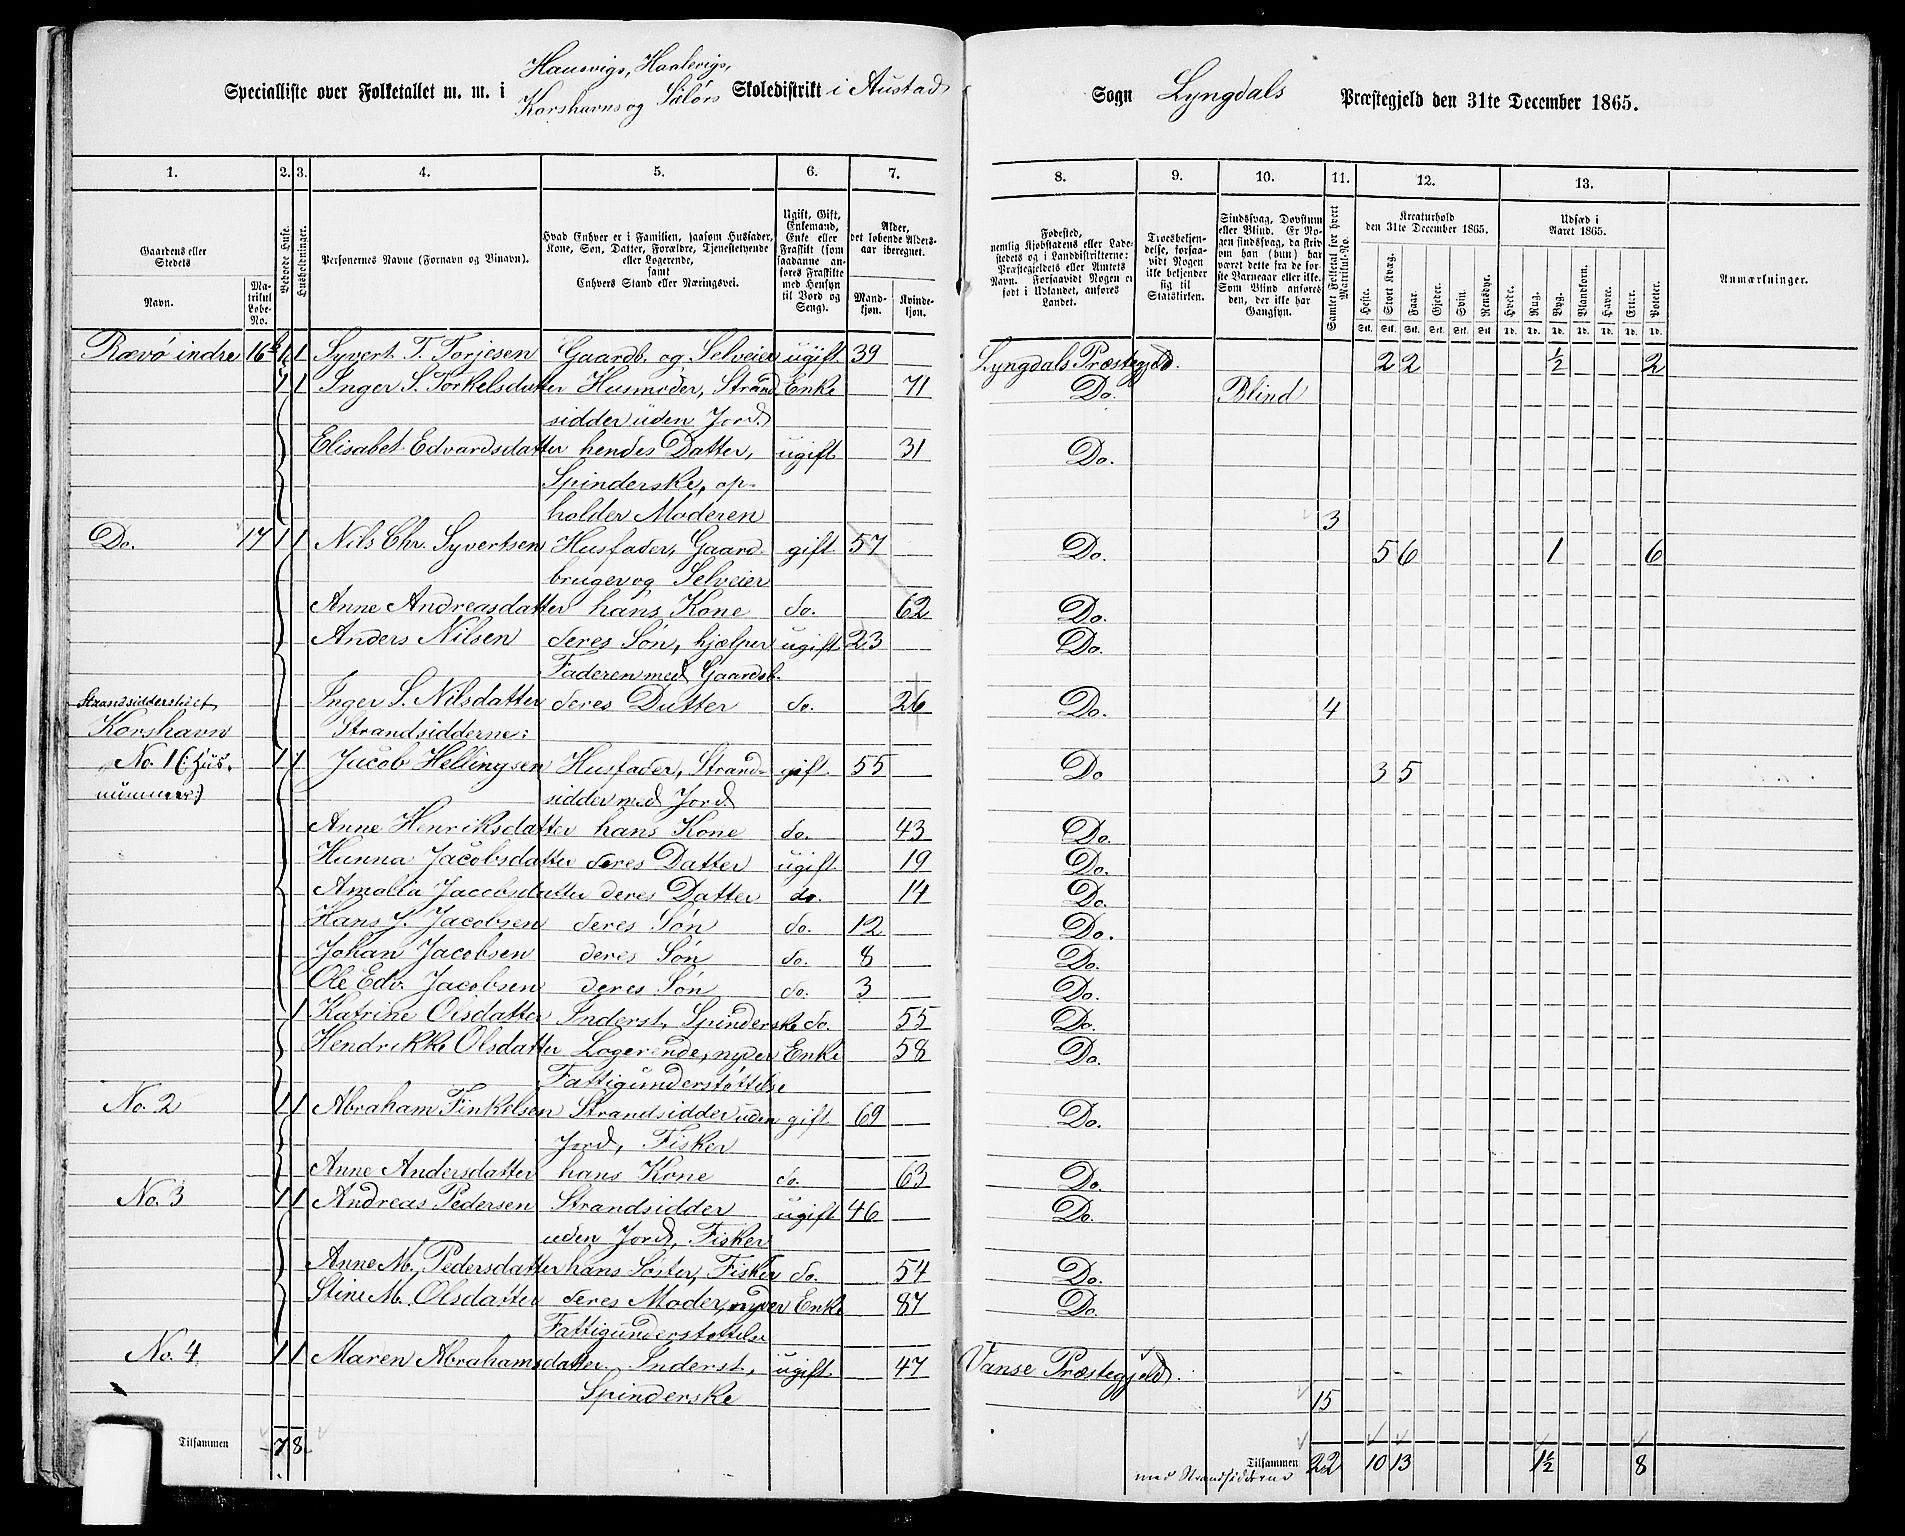 Specialliste over Folketallet m. m. i Hausvigs, Haalevigs, Korshavns og Sälørs Skoledistrikt i Austad Sogn Lyngdals Præstegjeld den 31te December 1865.
1. 2. 3. 4. 5. 6. 7. 8. 9. 10. 11. 12. 13.
Gaardens eller Stedets
Navn.
Matrikul Løbe-No.
Beboede Huse.
Husholdninger.
Personernes Navne (Fornavn og Binavn).
Hvad Enhver er i Familien, saasom Husfader, Kone, Søn, Datter, Forældre, Tjenestetyende eller Logerende, samt Enhvers Stand eller Næringsvei.
Ugift, Gift, Enkemand, Enke eller Fraskilt (som saadanne anføres Fraskilte med Hensyn til Bord og Seng).
Alder, det løbende Alders-aar iberegnet.
Mandkjøn.
Kvindekjøn.
Fødested, nemlig Kjøbstadens eller Ladestedets og i Landdistrikterne: Præstegjeldets eller Amtets Navn. Forsaavidt Nogen er født i Udlandet, anføres Landet.
Troesbekjendelse, forsaavidt Nogen ikke bekjender sig til Statskirken.
Sindssvag, Døvstum eller Blind. Er Nogen sindssvag, da skrives om han (hun) har været dette fra de første Barneaar eller ikke. Som Blind anføres den, der ikke har Gangsyn.
Samlet Folketal for hvert Matrikul-No.
Kreaturhold den 31te December 1865.
Heste. Stort Kvæg. Faar. Gjeder. Svin. Rensdyr.
Stk. Stk. Stk. Stk. Stk. Stk.
Udsæd i Aaret 1865.
Hvede. Rug. Byg. Blandkorn. Havre. Erter. Poteter.
Td. Td. Td. Td. Td. Td. Td.
Anmærkninger.
Rævø indre 16b 1 1 Syvert T. Torjesen Gaardb. og Selveier ugift 39 Lyngdals Præstegjeld. 2 2 ½ 2
1 1 Inger S. Torkelsdatter Husmoder, Strand- Enke 71 Do. Blind
sidder uden Jord.
Elisabet Edvardsdatter hendes Datter, ugift 31 Do.
Spinderske, op-
holder Moderen 3
Do. 17 1 1 Nils Chr. Syvertsen Husfader, Gaard- gift 57 Do. 5 6 1 6
bruger og Selveier
Anne Andreasdatter hans Kone do. 62 Do.
Anders Nilsen deres Søn, hjælper ugift 23 Do.
Faderen med Gaardsb.
Inger S. Nilsdatter deres Datter do. 26 Do. 4
Strandsidderstedet
Korshavn Strandsidderne:
No. 1 (: Hus- 1 1 Jacob Hellingsen Husfader, Strand- gift 55 Do 3 5
nummer:) sidder med Jord
Anne Henriksdatter hans Kone do. 43 Do.
Hanna Jacobsdatter deres Datter ugift 19 Do.
Amalia Jacobsdatter deres Datter do. 14 Do.
Hans J. Jacobsen deres Søn do. 12 Do.
Johan Jacobsen deres Søn do. 8 Do.
Ole Edv. Jacobsen deres Søn do. 3 Do.
1 Katrine Olsdatter Inderst, Spinderske do. 55 Do.
Hendrikke Olsdatter Logerende, nyder Enke 58 Do.
Fattigunderstøttelse
No. 2 1 1 Abraham Finkelsen Strandsidder uden gift 69 Do.
Jord, Fisker
Anne Andersdatter hans Kone do. 63 Do.
No. 3 1 1 Andreas Pedersen Strandsidder ugift 46 Do.
uden Jord, Fisker
Anne M. Pedersdatter hans Søster, Fisker do. 54 Do.
Stine M. Olsdatter deres Moder, nyder Enke 87 Do.
Fattigunderstøttelse
No. 4 1 1 Maren Abrahamsdatter Inderst, ugift 47 Vanse Præstegjeld.
Spinderske 15
Tilsammen 7 8 Tilsammen 22 10 13 1½ 8
med Strandsidderne